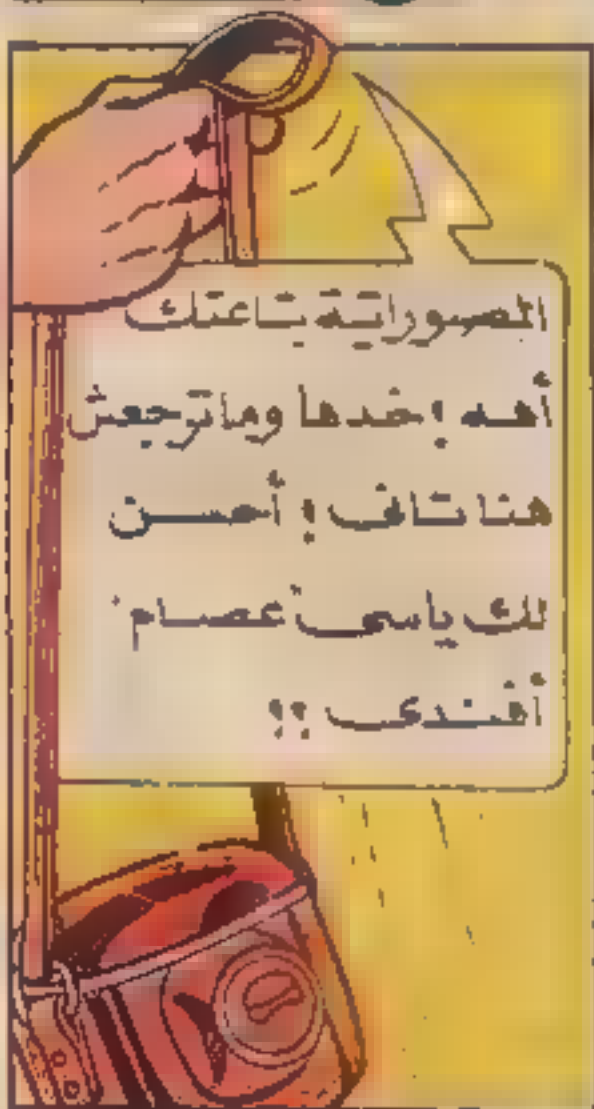 المصوراتية بتاعتك
أهه ! خدها وماترجعش
هنا تاني ! أحسن
لك ياسى "عصام"
أفندى !!